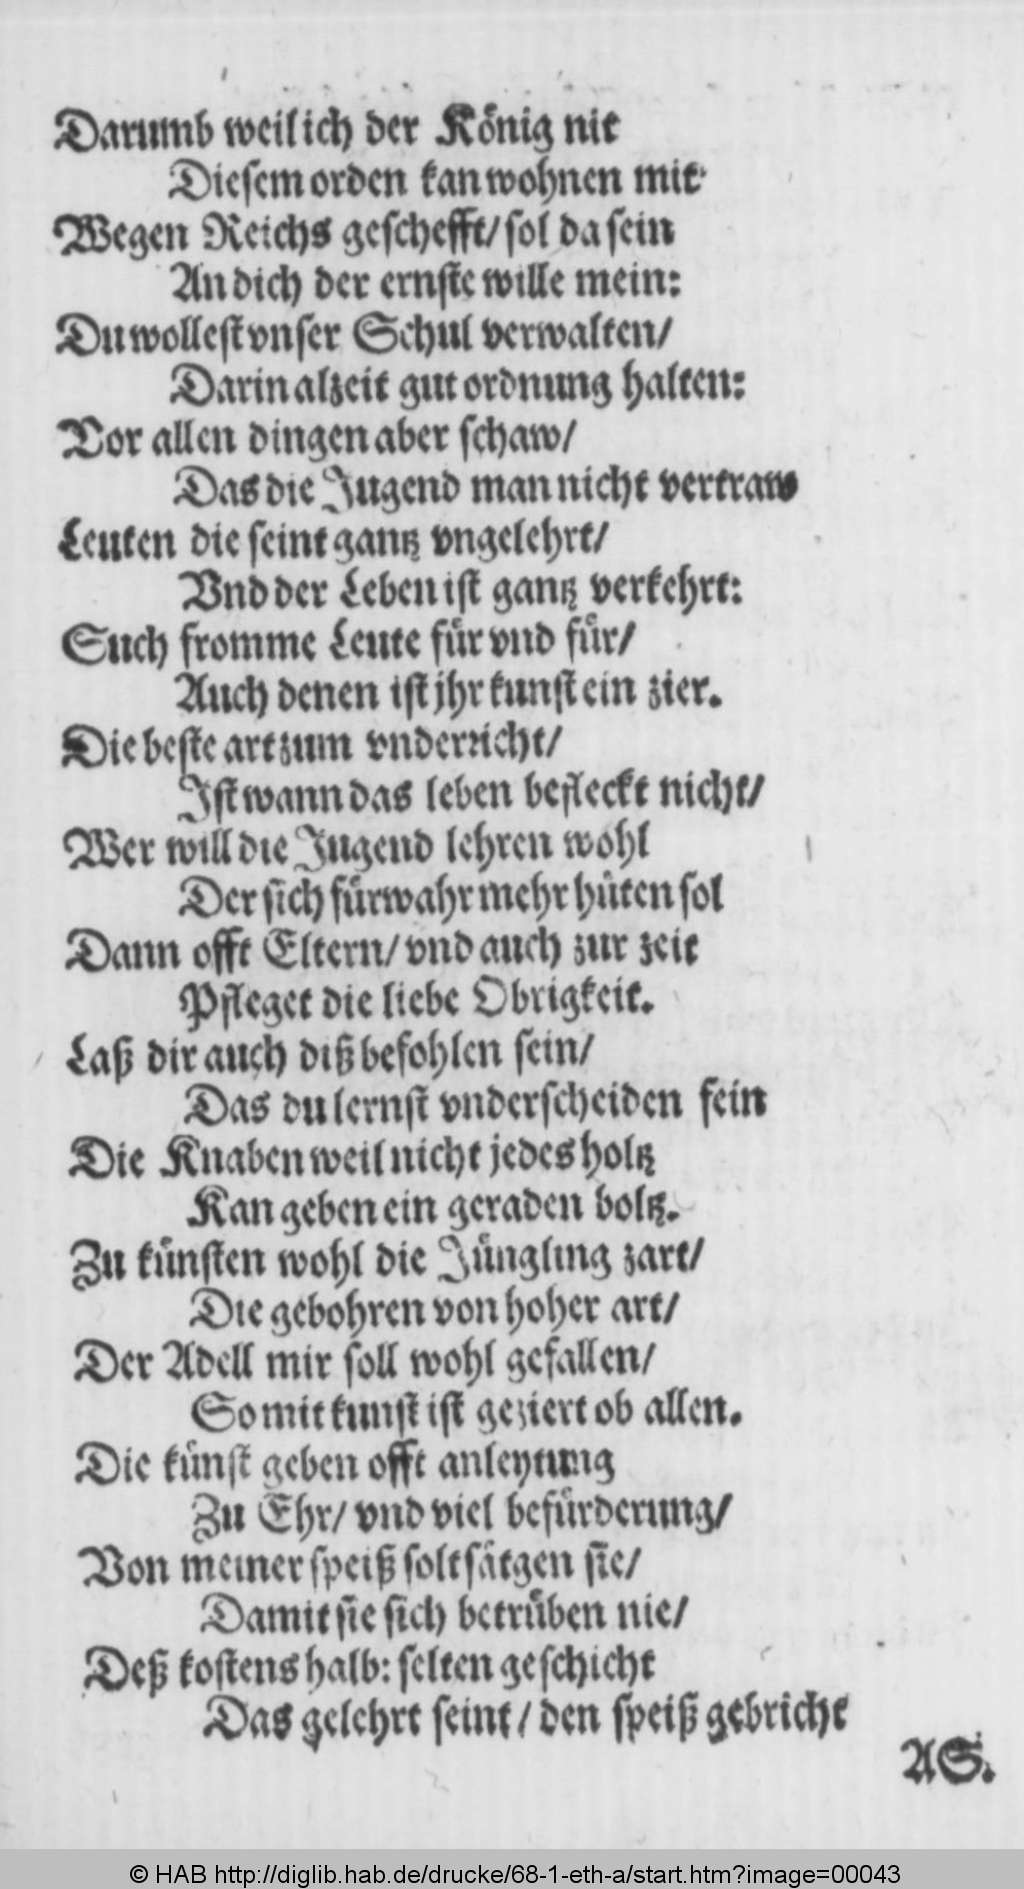 Darumb weil ich der König nit
Diesem orden kan wohnen mit
Wegen Reichs geschefft/ sol da sein
An dich der ernste wille mein:
Du wollest vnser Schul verwalten/
Darin alzeit gut ordnung halten:
Vor allen dingen aber schaw/
Das die Jugend man nicht vertraw
Leuten die seint gantz vngelehrt/
Vnd der Leben ist gantz verkehrt:
Such fromme Leute für vnd für/
Auch denen ist jhr kunst ein zier.
Die beste art zum vnderricht/
Ist wann das leben befleckt nicht/
Wer will die Jugend lehren wohl
Der sich fürwahr mehr hüten sol
Dann offt Eltern/ vnd auch zur zeit
Pfleget die liebe Obrigkeit.
Laß dir auch diß befohlen sein/
Das du lernst vnderscheiden fein
Die Knaben weil nicht jedes holtz
Kan geben ein geraden boltz.
Zu künsten wohl die Jüngling zart/
Die gebohren von hoher art/
Der Adell mir soll wohl gefallen/
So mit kunst ist geziert ob allen.
Die künst geben offt anleytung
Zu Ehr/ vnd viel befürderung/
Von meiner speiß solt sätgen sie/
Damit sie sich betrüben nie/
Deß kostens halb: selten geschicht
Das gelehrt seint/ den speiß gebricht
AS.
© HAB http://diglib.hab.de/drucke/68-1-eth-a/start.htm?image=00043